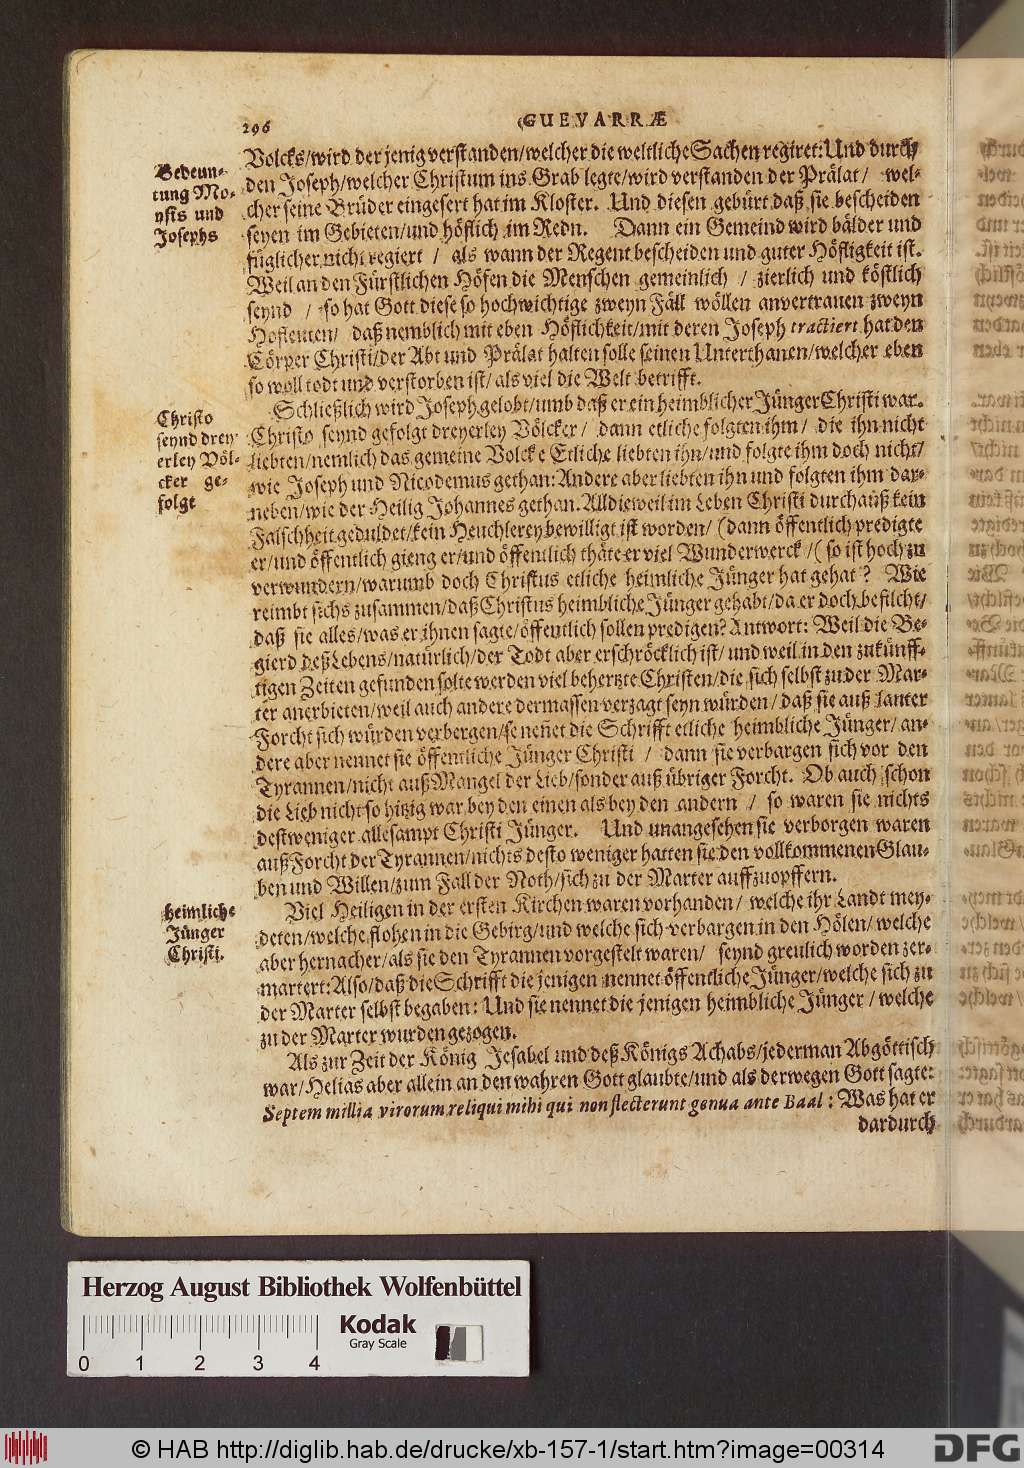 296
GUEVARRÆ
Bedeun-
tung Mo-
ysis und
Josephs
Volcks/wird der jenig verstanden/welcher die weltliche Sachen regiret: Und durch
den Joseph/welcher Christum ins Grab legte/wird verstanden der Prälat/ wel-
cher seine Brüder eingesert hat im Kloster. Und diesen gebürt daß sie bescheiden
seyen im Gebieten/und höflich im Redn. Dann ein Gemeind wird bälder und
füglicher nicht regiert / als wann der Regent bescheiden und guter Höfligkeit ist.
Weil an den Fürstlichen Höfen die Menschen gemeinlich / zierlich und köstlich
seynd / so hat Gott diese so hochwichtige zweyn Fäll wöllen anvertrauen zweyn
Hofleuten/ daß nemblich mit eben Höflichkeit/mit deren Joseph tractiert hat den
Cörper Christi/der Abt und Prälat halten solle seinen Unterthanen/welcher eben
so woll todt und verstorben ist/ als viel die Welt betrifft.
Christo
seynd drey-
erley Völ-
cker ge-
folgt
Schließlich wird Joseph gelobt/umb daß er ein heimblicher Jünger Christi war.
Christo seynd gefolgt dreyerley Völcker/ dann etliche folgten ihm/ die ihn nicht
liebten/nemlich das gemeine Volck e Etliche liebten ihn/und folgte ihm doch nicht/
wie Joseph und Nicodemus gethan: Andere aber liebten ihn und folgten ihm dar-
neben/wie der Heilig Johannes gethan. Alldieweil im Leben Christi durchauß kein
Falschheit geduldet/kein Heuchlerey bewilligt ist worden/ (dann öffentlich predigte
er/und öffentlich gieng er/und öffentlich thäte er viel Wunderwerck/( so ist hoch zu
verwundern/warumb doch Christus etliche heimliche Jünger hat gehat? Wie
reimbt sichs zusammen/daß Christus heimbliche Jünger gehabt/da er doch befilcht/
daß sie alles/was er ihnen sagte/öffentlich sollen predigen? Antwort: Weil die Be-
gierd deß Lebens/natürlich/der Todt aber erschröcklich ist/ und weil in den zukünff-
tigen Zeiten gefunden solte werden viel behertzte Christen/die sich selbst zu der Mar-
ter anerbieten/weil auch andere dermassen verzagt seyn würden/ daß sie auß lauter
Forcht sich würden verbergen/so neñet die Schrifft etliche heimbliche Jünger/ an-
dere aber nennet sie öffentliche Jünger Christi / dann sie verbargen sich vor den
Tyrannen/nicht auß Mangel der Lieb/sonder auß übriger Forcht. Ob auch schon
die Lieb nicht so hitzig war bey den einen als bey den andern / so waren sie nichts
destweniger allesampt Christi Jünger. Und unangesehen sie verborgen waren
auß Forcht der Tyrannen/nichts desto weniger hatten sie den vollkommenen Glau-
ben und Willen/zum Fall der Noth/sich zu der Marter auffzuopffern.
heimliche
Jünger
Christi.
Viel Heiligen in der ersten Kirchen waren vorhanden/ welche ihr Landt mey-
deten/welche flohen in die Gebirg/und welche sich verbargen in den Hölen/ welche
aber hernacher/als sie den Tyrannen vorgestelt waren/ seynd greulich worden zer-
martert: Also/daß die Schrifft die jenigen nennet öffentliche Jünger/welche sich zu
der Marter selbst begaben: Und sie nennet die jenigen heimbliche Jünger / welche
zu der Marter wurden gezogen.
Als zur Zeit der König Jesabel und deß Königs Achabs/jederman Abgöttisch
war/Helias aber allein an den wahren Gott glaubte/und als derwegen Gott sagte:
Septem millia virorum reliqui mihi qui non flecterunt genua ante Baal: Was hat er
dardurch
Herzog August Bibliothek Wolfenbüttel
Kodak
Gray Scale
0 1 2 3 4
© HAB http://diglib.hab.de/drucke/xb-157-1/start.htm?image=00314
DFG